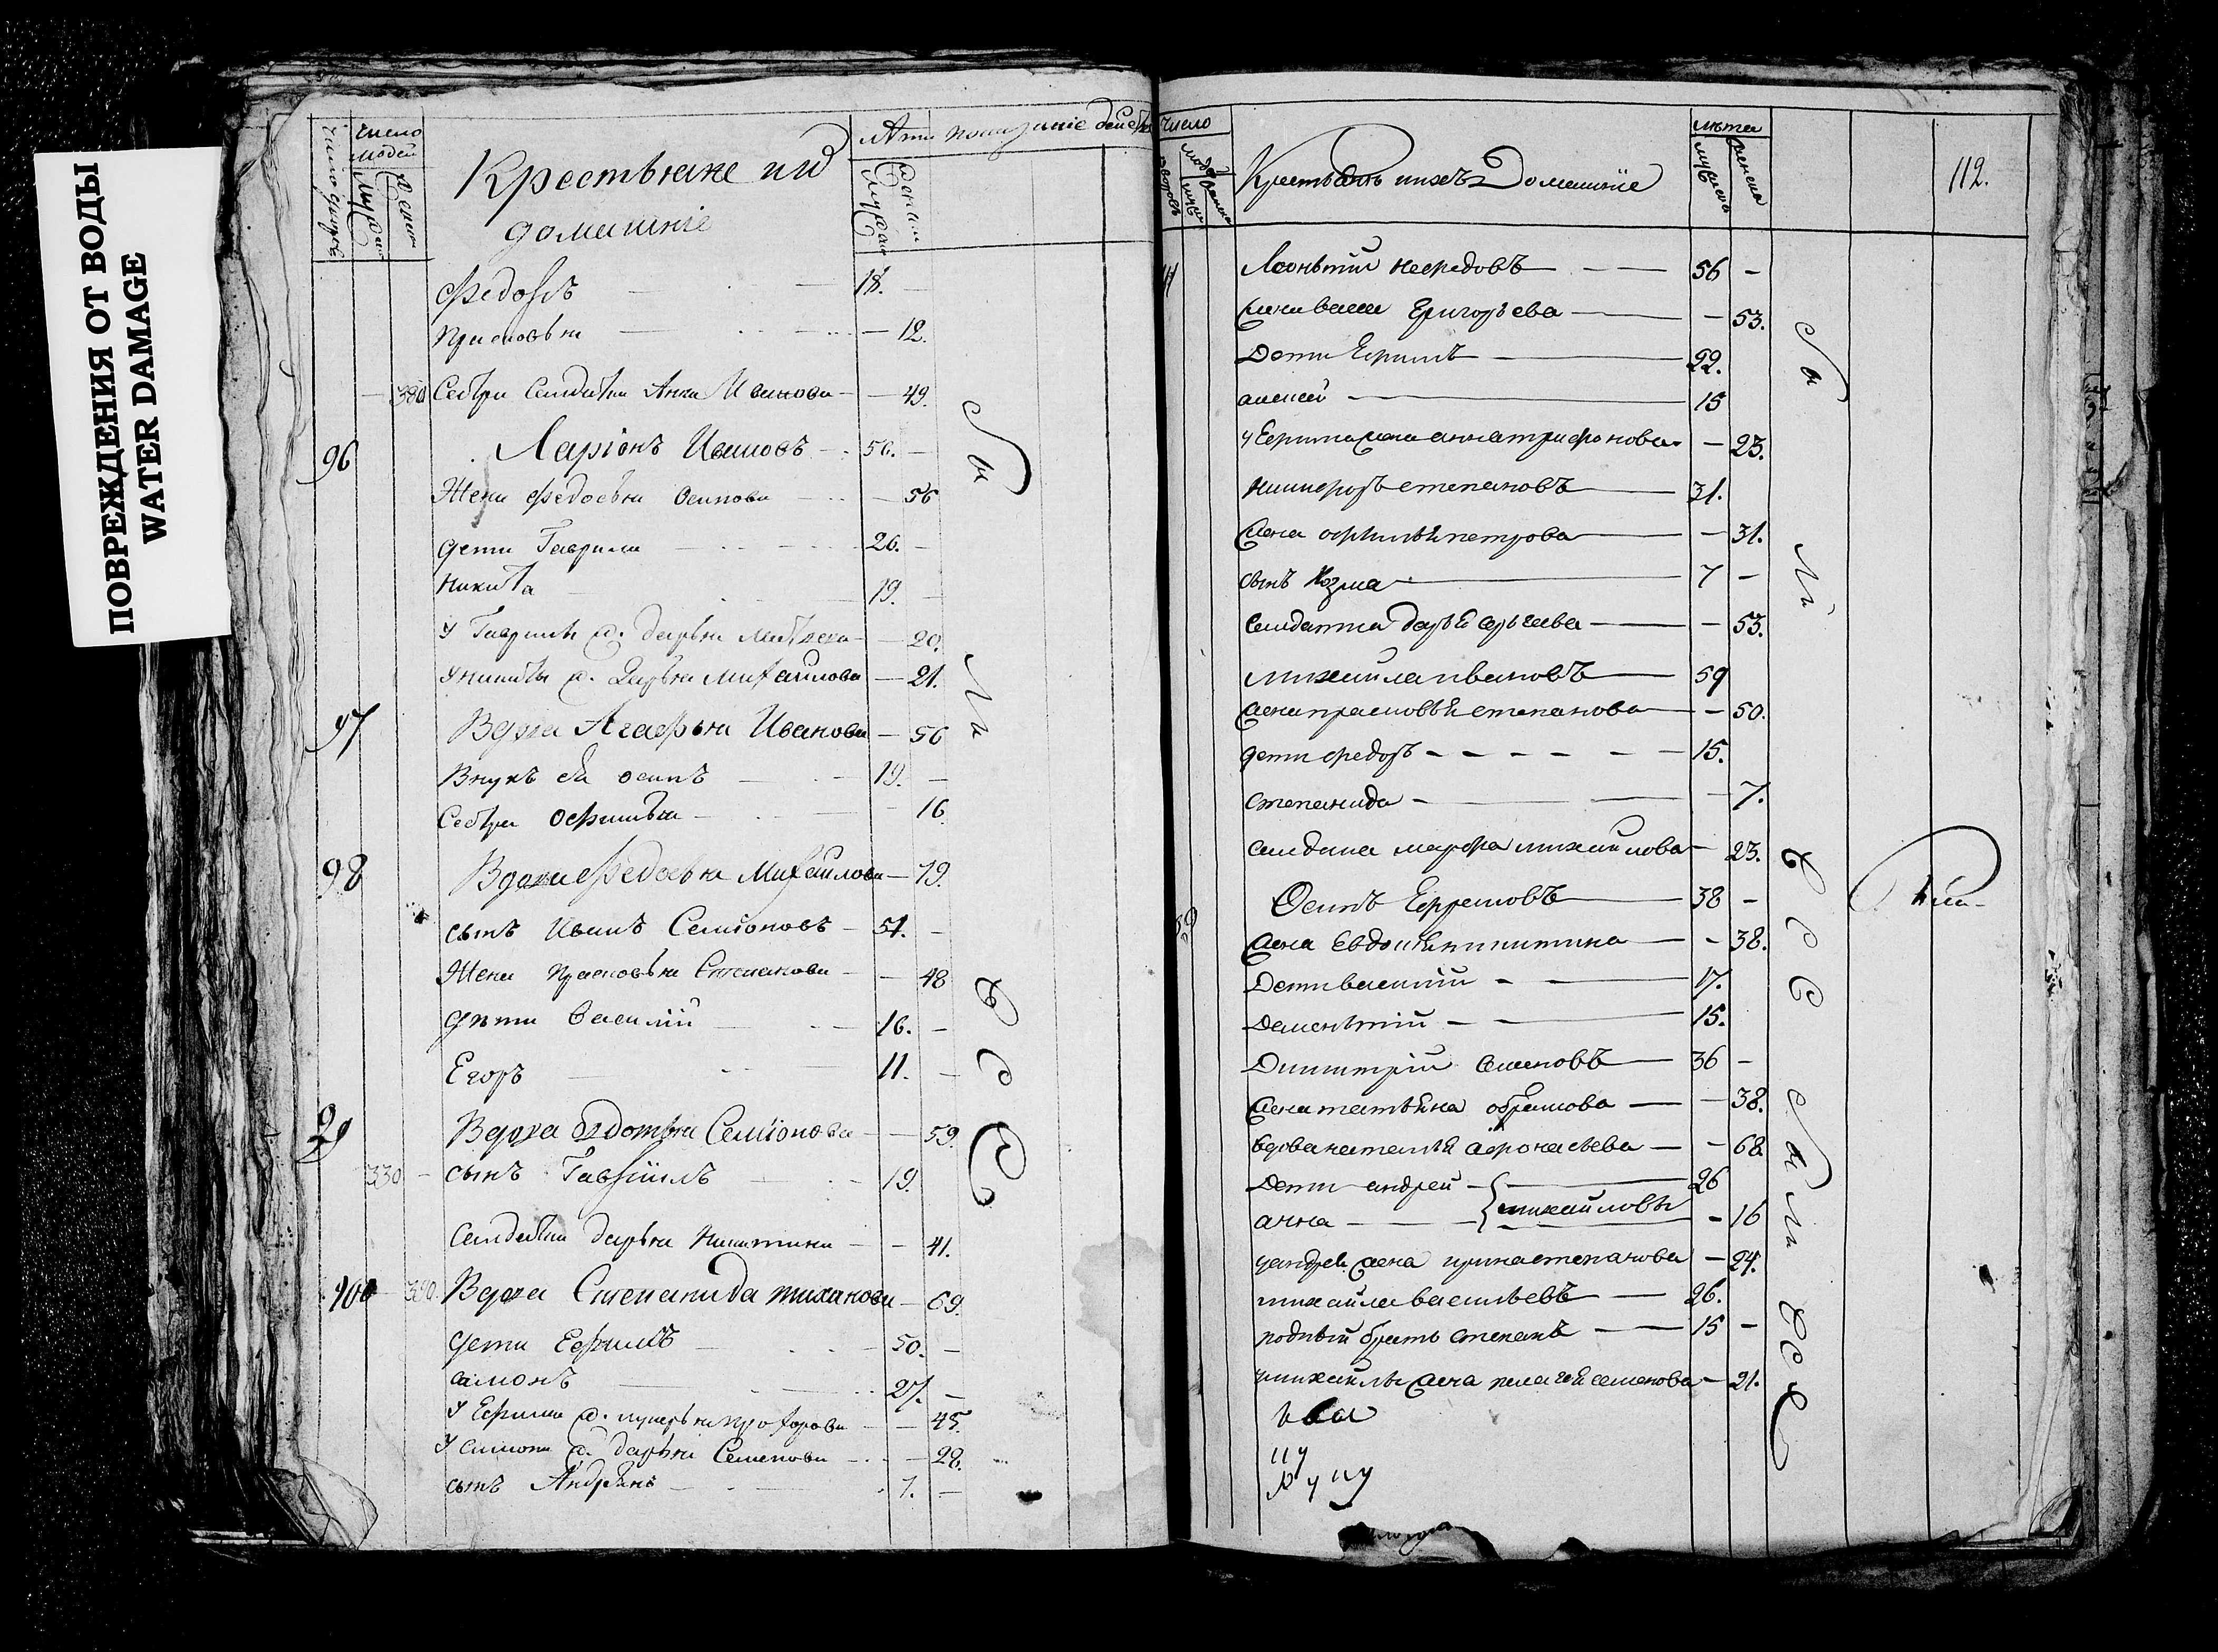 ПОВРЕЖДЕНИЯ ОТ ВОДЫ
WATER DAMAGE
число
людей
Крестьяне ихъ
домашніе
Федоръ 18. —
Прасковья — 12.
380 Сестра Салдатка Анна Иванова — 49.
96 Ларіонъ Ивановъ 56. —
Жена Федосья Осипова — 56
дети Гаврила 26. —
Никита 19. —
У Гаврилы ж. дарья — 20.
У никиты ж. Дарья Михайлова — 21.
97 Вдова Агафья Иванова — 56
Внукъ ея осипъ 19. —
Сестра Офимья — 16
98 Вдова Федосья Михайлова — 79.
сынъ Иванъ Семіоновъ 51. —
Жена Прасковья Степанова — 48
дѣти Василій 16. —
Егоръ 11. —
99 Вдова Овдотья Семіонова — 59.
330 — сынъ Гавріилъ 19.
Салдатка дарья Никитина — 41.
100 390 Вдова Степанида — 69.
дети Ефимъ 50. —
Симонъ 27. —
У Ефима ж. — 45.
У Симона ж. дарья Семенова — 28.
сынъ Андреянъ 7. —
число
людей
Крестьянъ ихъ Домашніе
лѣта
112.
Леонтій Нефедовъ 56 —
Григорьева — 53.
Дети Ефимъ 22.
алексей 15
у Ефима жена анна трифонова — 23.
Никифоръ степановъ 31.
жена офимья петрова — 31.
сынъ Козма 7 —
Салдатка дарья сергеева — 53.
михайла ивановъ 59
жена прасковья степанова — 50.
дети федоръ 15.
степанида — 7.
салдатка марфа михайлова — 23.
Осипъ Ефремовъ 38 —
жена Евдокия никитина — 38.
Дети василій 17.
Дементій 15.
Димитрій Семеновъ 36 —
жена татьяна — 38.
вдова наталья афонасьева — 68
Дети андрей 26
михайловы
анна — 16
у андрея жена ирина степанова — 24.
михайла васильевъ 26.
родный братъ степанъ 15 —
у михайлы жена пелагея семенова — 21.